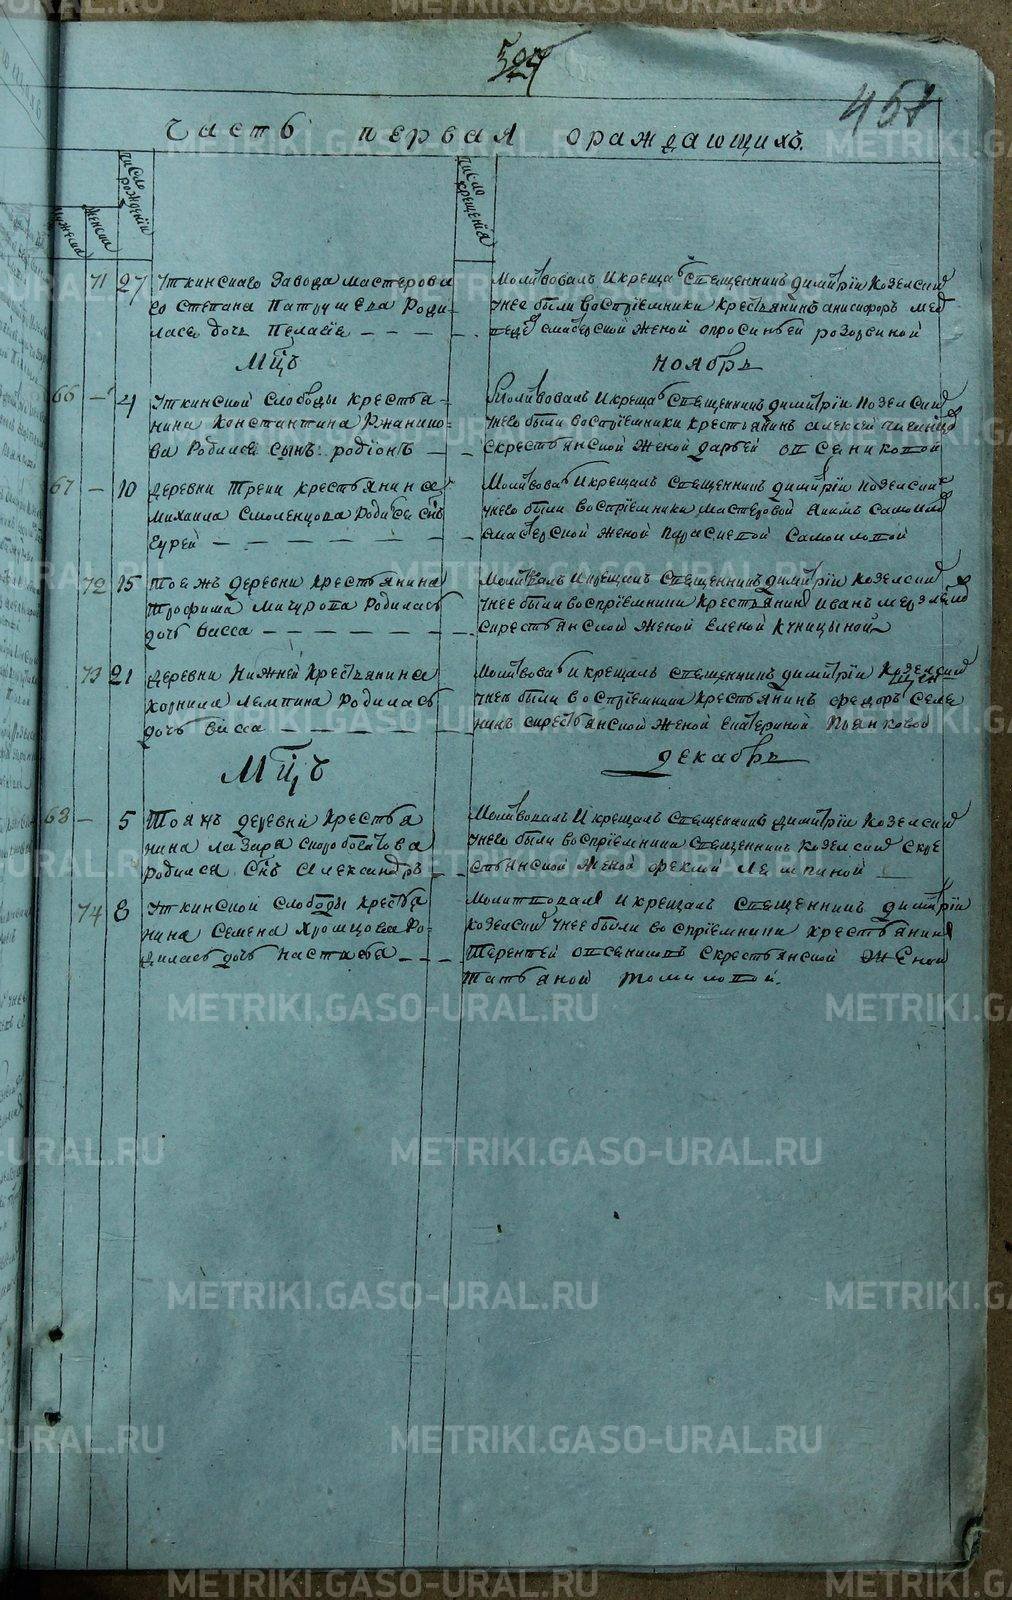 457
часть первая ораждающихъ.
число рожденїи
число крещенїя
мужеска
женска
71 27 Уткинскаго Завода мастерова
го Степана Патрушева Роди-
лась дочь Пелагїе
Молитвовалъ И креща Священникъ Димитрїи Козелский
унее были Воспрїемники Крестьянинъ анисифоръ мед
женой
Мцъ ноябрь
66 - 4 Уткинской Слободы Крестья-
нина Константина Ржанико-
ва Родился сынъ родїонъ
Молитвовалъ И креща Священникъ Димитрїи Козелский
унево были Воспрїемники крестьянинъ алексей
скрестьянской женой дарьей овсениковой
67 - 10 деревни Треки крестьянина
михаила Смоленцова Родился снъ
Гурей
Молитвова И крещалъ Священникъ димитрїи Козелский
унево были Воспрїемники мастеровой
смастерской женой параскевой Самоиловой
72 15 Тоежъ деревни крестьянина
Трофима мичурова Родилась
дочь Васса
Молитвовалъ И крещалъ Священникъ димитрїи Козелский
унее были воспрїемники Крестьянинъ Иванъ
скрестьянской женой Еленой Куницыной
73 21 деревни Нижней Крестьянина
Корнила Лемпина Родилась
дочь Васса
Молитвова И крещалъ Священникъ димитрїи Козелский
унее были воспрїемники Крестьянинъ федоръ Селе
нинъ скрестьянской женой Екатериной Пьянковой
Мцъ декабрь
68 - 5 Тояжъ деревни Крестья
нина лазара скоробогатова
родился Снъ Александръ
Молитвовалъ И крещалъ Священникъ Димитрїи Козелский
унево были воспрїемника Священникъ Козелский Скре
стьянской женой феклой Лемпиной
74 8 Уткинской слободы Крестья
нина Семена Хромцова Ро-
дилась дочь Настасья
Молитвовалъ И крещалъ Священникъ Димитрїи
Козелский унее были воспрїемники крестьянинъ
Терентей овсениковъ Скрестьянской женой
татьяной томиловой.
METRIKI.GASO-URAL.RU